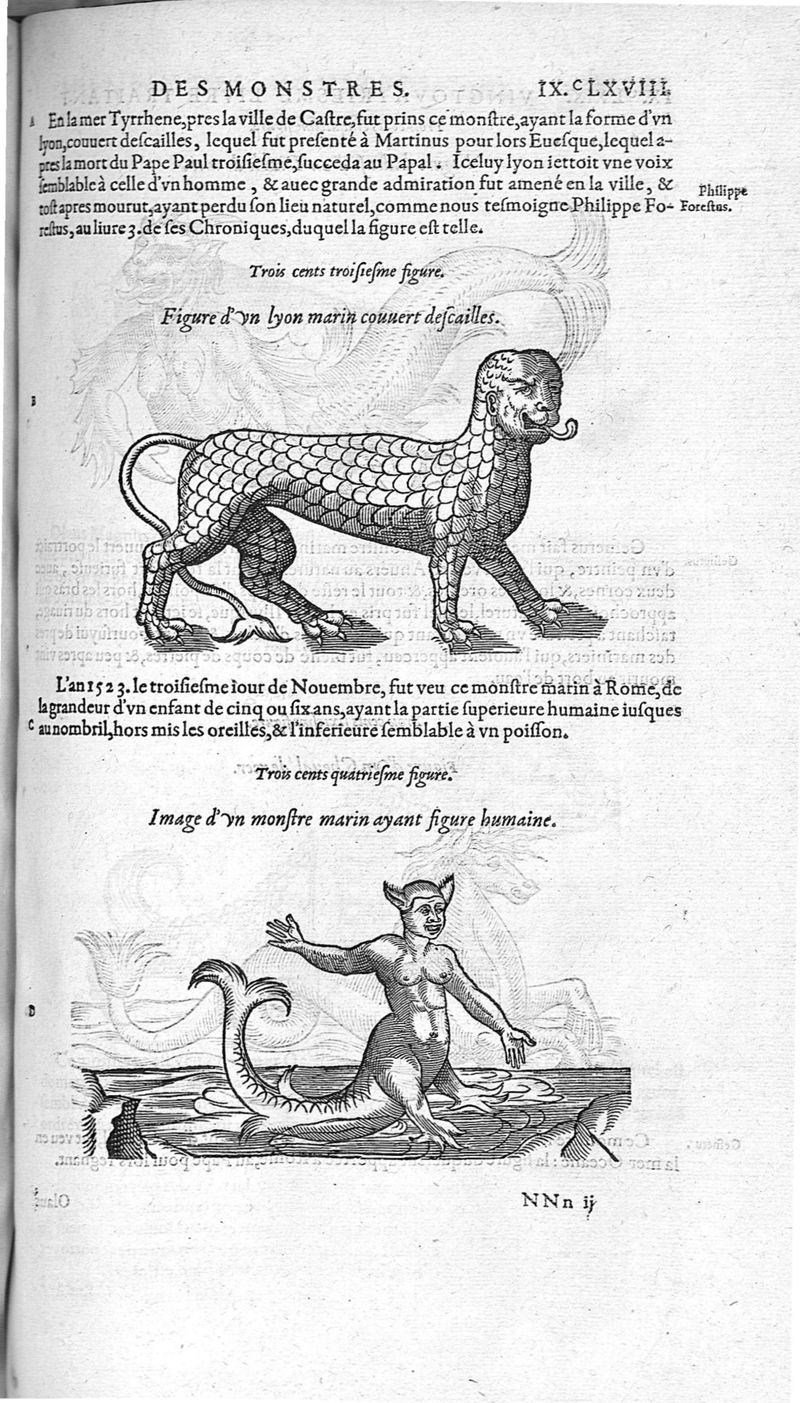 DES MONSTRES. IX.CLXVIII.
A En la mer Tyrrhene, pres la ville de Castre, fut prins ce monstre, ayant la forme d'vn
lyon, couuert descailles, lequel fut presenté à Martinus pour lors Euesque, lequel a-
pres la mort du Pape Paul troisiesme, succeda au Papal. Iceluy lyon iettoit vne voix
semblable à celle d'vn homme, & auec grande admiration fut amené en la ville, &
tost apres mourut, ayant perdu son lieu naturel, comme nous tesmoigne Philippe Fo-
restus, au liure 3. de ses Chroniques, duquel la figure est telle.
Philippe
Forestus.
Trois cents troisiesme figure.
Figure d'vn lyon marin couuert descailles.
B
L'an 1523. le troisiesme iour de Nouembre, fut veu ce monstre marin à Rome, de
la grandeur d'vn enfant de cinq ou six ans, ayant la partie superieure humaine iusques
C au nombril, hors mis les oreilles, & l'inferieure semblable à vn poisson.
Trois cents quatriesme figure.
Image d'vn monstre marin ayant figure humaine.
D
NNn ij